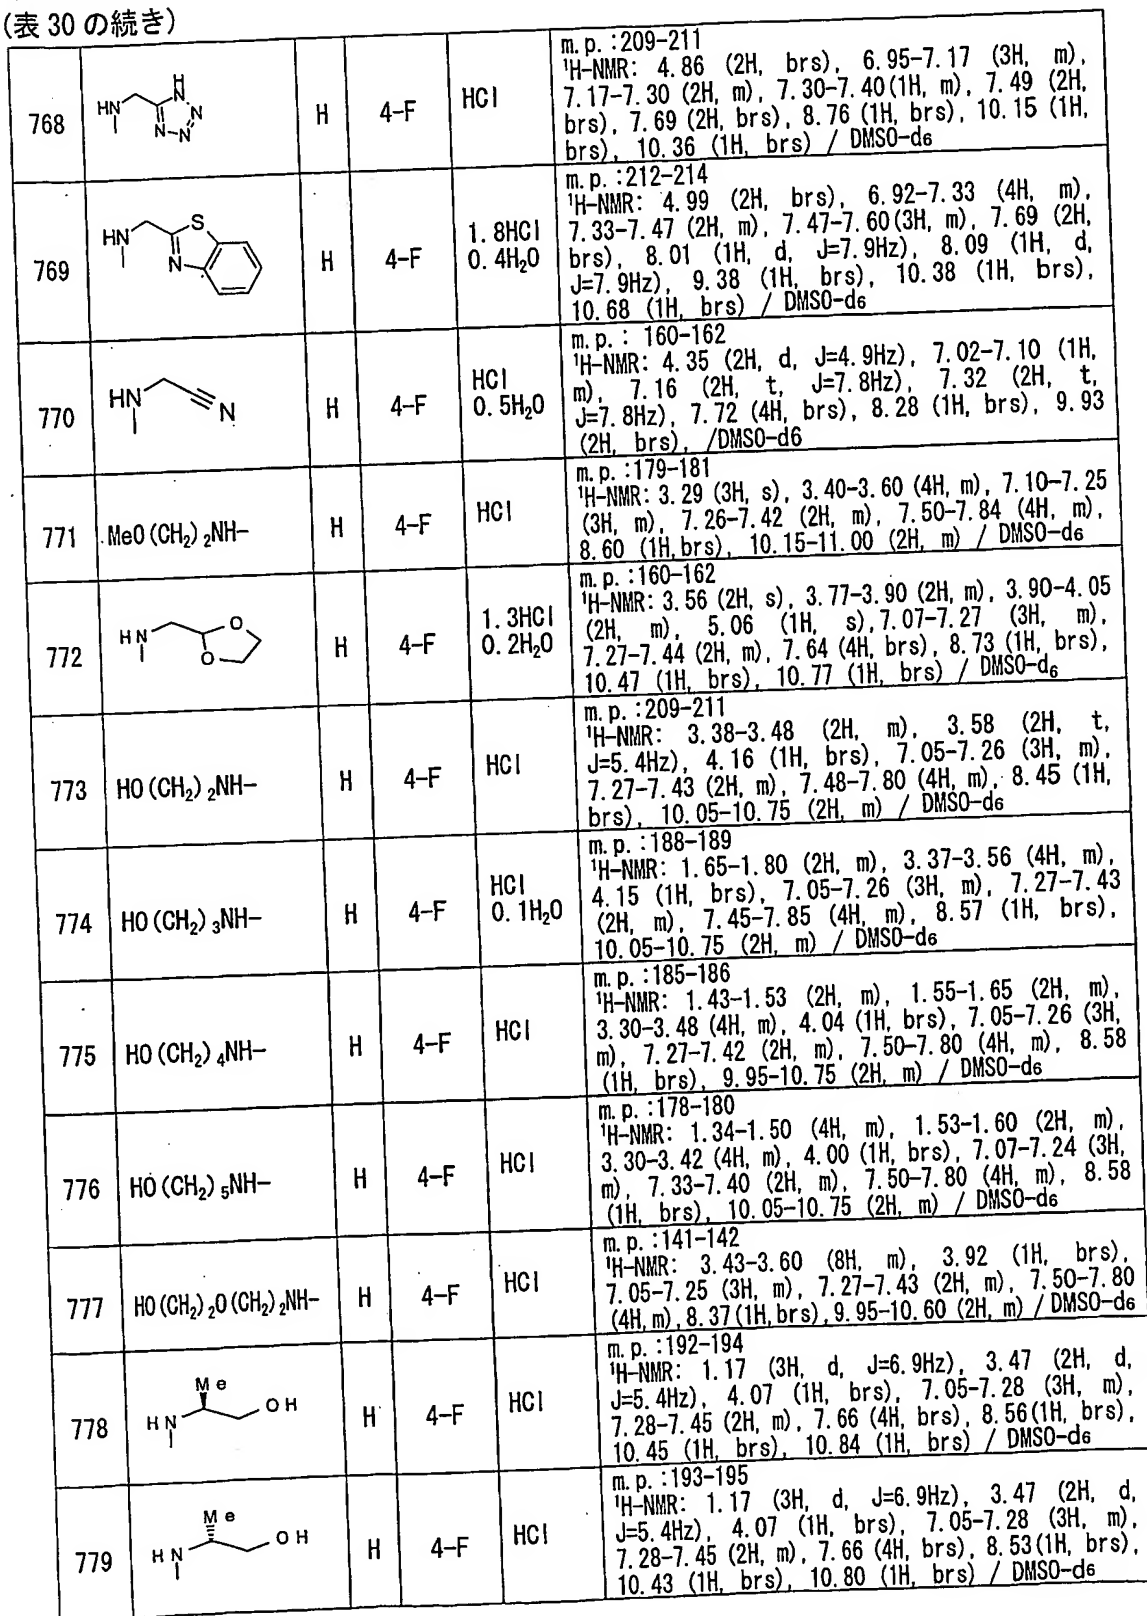 (表 30 の続き)
768
HN
H
N
N
N-N
H
4-F
HCl
m.p.:209-211
¹H-NMR: 4.86 (2H, brs), 6.95-7.17 (3H, m),
7.17-7.30 (2H, m), 7.30-7.40(1H, m), 7.49 (2H,
brs), 7.69 (2H, brs), 8.76 (1H, brs), 10.15 (1H,
brs), 10.36 (1H, brs) / DMSO-d6
769
HN
S
N
H
4-F
1.8HCl
0.4H₂O
m.p.:212-214
¹H-NMR: 4.99 (2H, brs), 6.92-7.33 (4H, m),
7.33-7.47 (2H, m), 7.47-7.60(3H, m), 7.69 (2H,
brs), 8.01 (1H, d, J=7.9Hz), 8.09 (1H, d,
J=7.9Hz), 9.38 (1H, brs), 10.38 (1H, brs),
10.68 (1H, brs) / DMSO-d6
770
HN
N
H
4-F
HCl
0.5H₂O
m.p.: 160-162
¹H-NMR: 4.35 (2H, d, J=4.9Hz), 7.02-7.10 (1H,
m), 7.16 (2H, t, J=7.8Hz), 7.32 (2H, t,
J=7.8Hz), 7.72 (4H, brs), 8.28 (1H, brs), 9.93
(2H, brs), /DMSO-d6
771
MeO(CH₂)₂NH-
H
4-F
HCl
m.p.:179-181
¹H-NMR: 3.29 (3H, s), 3.40-3.60 (4H, m), 7.10-7.25
(3H, m), 7.26-7.42 (2H, m), 7.50-7.84 (4H, m),
8.60 (1H,brs), 10.15-11.00 (2H, m) / DMSO-d6
772
HN
O
O
H
4-F
1.3HCl
0.2H₂O
m.p.:160-162
¹H-NMR: 3.56 (2H, s), 3.77-3.90 (2H, m), 3.90-4.05
(2H, m), 5.06 (1H, s),7.07-7.27 (3H, m),
7.27-7.44 (2H, m), 7.64 (4H, brs), 8.73 (1H, brs),
10.47 (1H, brs), 10.77 (1H, brs) / DMSO-d₆
773
HO(CH₂)₂NH-
H
4-F
HCl
m.p.:209-211
¹H-NMR: 3.38-3.48 (2H, m), 3.58 (2H, t,
J=5.4Hz), 4.16 (1H, brs), 7.05-7.26 (3H, m),
7.27-7.43 (2H, m), 7.48-7.80 (4H, m), 8.45 (1H,
brs), 10.05-10.75 (2H, m) / DMSO-d6
774
HO(CH₂)₃NH-
H
4-F
HCl
0.1H₂O
m.p.:188-189
¹H-NMR: 1.65-1.80 (2H, m), 3.37-3.56 (4H, m),
4.15 (1H, brs), 7.05-7.26 (3H, m), 7.27-7.43
(2H, m), 7.45-7.85 (4H, m), 8.57 (1H, brs),
10.05-10.75 (2H, m) / DMSO-d6
775
HO(CH₂)₄NH-
H
4-F
HCl
m.p.:185-186
¹H-NMR: 1.43-1.53 (2H, m), 1.55-1.65 (2H, m),
3.30-3.48 (4H, m), 4.04 (1H, brs), 7.05-7.26 (3H,
m), 7.27-7.42 (2H, m), 7.50-7.80 (4H, m), 8.58
(1H, brs), 9.95-10.75 (2H, m) / DMSO-d6
776
HO(CH₂)₅NH-
H
4-F
HCl
m.p.:178-180
¹H-NMR: 1.34-1.50 (4H, m), 1.53-1.60 (2H, m),
3.30-3.42 (4H, m), 4.00 (1H, brs), 7.07-7.24 (3H,
m), 7.33-7.40 (2H, m), 7.50-7.80 (4H, m), 8.58
(1H, brs), 10.05-10.75 (2H, m) / DMSO-d6
777
HO(CH₂)₂O(CH₂)₂NH-
H
4-F
HCl
m.p.:141-142
¹H-NMR: 3.43-3.60 (8H, m), 3.92 (1H, brs),
7.05-7.25 (3H, m), 7.27-7.43 (2H, m), 7.50-7.80
(4H,m),8.37(1H,brs),9.95-10.60 (2H, m) / DMSO-d6
778
Me
HN
OH
H
4-F
HCl
m.p.:192-194
¹H-NMR: 1.17 (3H, d, J=6.9Hz), 3.47 (2H, d,
J=5.4Hz), 4.07 (1H, brs), 7.05-7.28 (3H, m),
7.28-7.45 (2H, m), 7.66 (4H, brs), 8.56(1H, brs),
10.45 (1H, brs), 10.84 (1H, brs) / DMSO-d6
779
Me
HN
OH
H
4-F
HCl
m.p.:193-195
¹H-NMR: 1.17 (3H, d, J=6.9Hz), 3.47 (2H, d,
J=5.4Hz), 4.07 (1H, brs), 7.05-7.28 (3H, m),
7.28-7.45 (2H, m), 7.66 (4H, brs), 8.53(1H, brs),
10.43 (1H, brs), 10.80 (1H, brs) / DMSO-d6